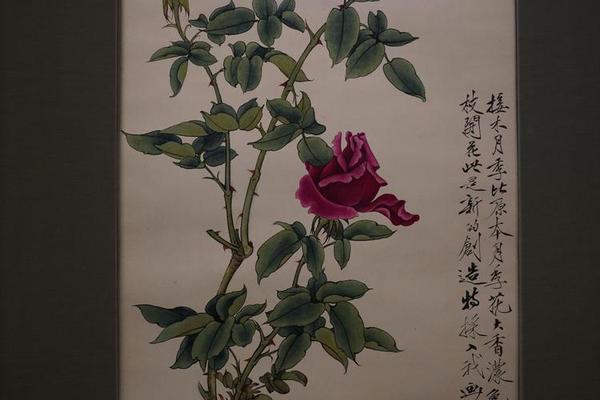 接木月季比原本月季花大香濃色
枝開花此是新的創造特採入我画